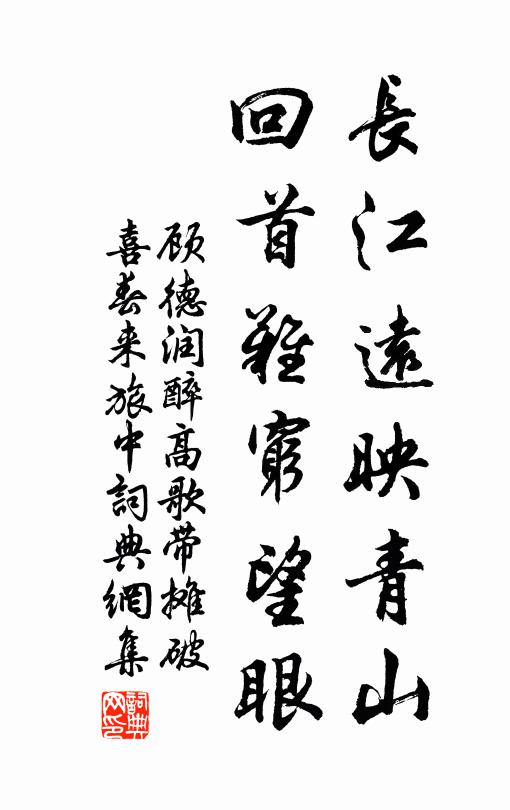 長江遠映青山
回首難窮望眼
顾德润醉高歌带摊破
喜春来旅中詞典網集
詞典网印